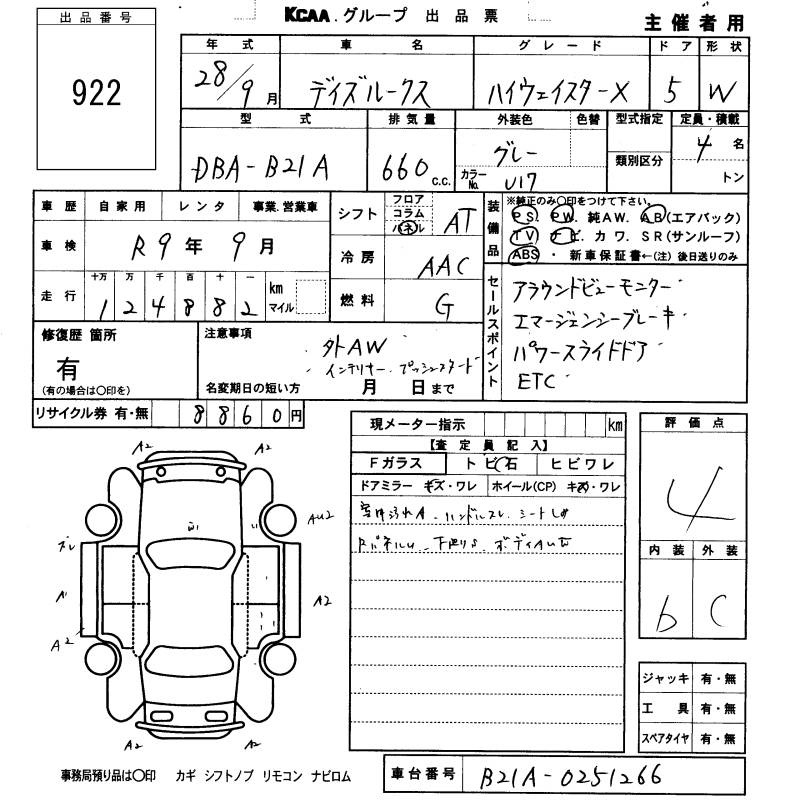 出品番号
922
KCAA.グループ 出品票
主催者用
年式 車名 グレード ドア 形状
28/9月 デイズルークス ハイウェイスターX 5 W
型式 排気量 外装色 色替 型式指定 定員・積載
DBA-B21A 660c.c. グレー 4名
カラーNo. U17 類別区分 トン
車歴 自家用 レンタ 事業.営業車
車検 R9年9月
走行 十万 万 千 百 十 一 km マイル
124882
シフト フロア コラム パネル AT
冷房 AAC
燃料 G
装備品 ※純正のみ〇印をつけて下さい。
PS. PW. 純AW. AB(エアバック)
TV. ナビ. カワ. SR(サンルーフ)
ABS ・ 新車保証書←(注) 後日送りのみ
セールスポイント
アラウンドビューモニター
エマージェンシーブレーキ
パワースライドドア
ETC
修復歴 箇所
有
(有の場合は〇印を)
注意事項
外AW
インテリキー プッシュスタート
名変期日の短い方 月 日まで
リサイクル券 有・無 8860円
現メーター指示 km
【査定員記入】
Fガラス トビ石 ヒビワレ
ドアミラー キズ・ワレ ホイール(CP) キズ・ワレ
室内汚れA ハンドルスレ シート
評価点
4
内装 外装
6 C
A2
A2
AU2
A2
A2
A2
A2
ジャッキ 有・無
工具 有・無
スペアタイヤ 有・無
事務局預り品は〇印 カギ シフトノブ リモコン ナビロム
車台番号 B21A-0251266